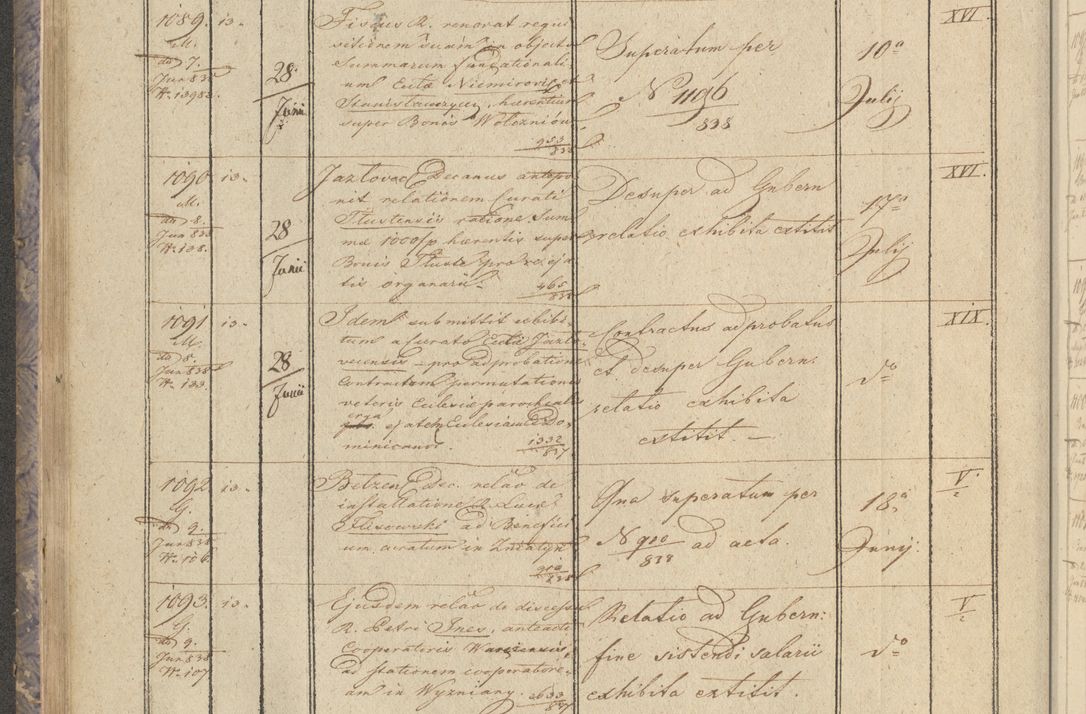 1089. 13.
M.
dto 7.
Jun 838
N. 13982.
28
Junii
Fiscus R. renovat requi
sitionem suam in objecto
Summarum fundationali
um Eccla Niemirovic et
super Bonis Wołczniow
953
838
Superatum per
N 1196
838
10a
Julij
XVI.
1090. 13.
M.
dto 8.
Jun 838
N. 138.
28
Junii
Jazlovac Decanus antepo
nit relationem Curati
Tlustensis ratione Sum
ma 1000 fp haerentis super
Bonis Tluste pro
tis organarii.
465
838
Desuper ad Gubern
relatio exhibita extitit
17a
Julij
XVI.
1091 13.
M.
dto 8.
Jun 838
N. 133.
28
Junii
Idem submittit exhibi
tum a Curato Eccla Jazlo
vecensis pro adprobatione
Contractum permutationis
veteris Ecclesiae parochialis
erga Ecclesiam Do,
minicanor.
1332
837
Contractus adprobatus
et desuper Gubern:
relatio exhibita
extitit. —
do
XIX.
1092 13.
G.
dto 9.
Jun 838
N. 106.
Betzen Dec. relão de
installatione R. Luca
Flisowski ad Benefici
um curatum in Zniatyn
900
838
Qua superatum per
N 900 ad acta.
838
18a
Junij.
V.
2
1093. 13.
G.
dto 9.
Jun 838
N. 107
Ejusdem relão de discessu
R. Petri Ines, anteacti
Cooperatoris
ad stationem cooperatore
am in Wyzniany.
2633
837
Relatio ad Gubern:
fine sistendi salarii
exhibita extitit.
do
V.
2